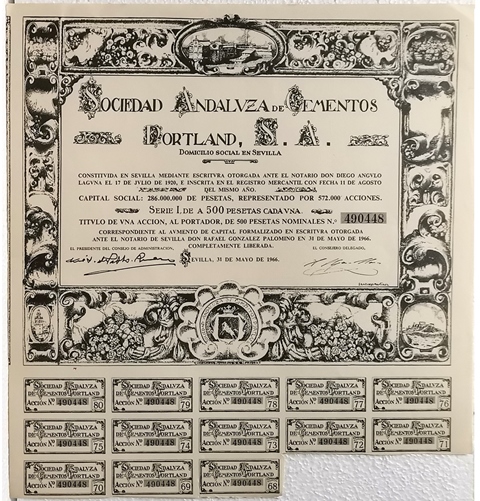 SOCIEDAD ANDALVZA DE CEMENTOS
PORTLAND, S. A.
DOMICILIO SOCIAL EN SEVILLA
CONSTITVIDA EN SEVILLA MEDIANTE ESCRITVRA OTORGADA ANTE EL NOTARIO DON DIEGO ANGVLO
LAGVNA EL 17 DE JVLIO DE 1920, E INSCRITA EN EL REGISTRO MERCANTIL CON FECHA 11 DE AGOSTO
DEL MISMO AÑO.
CAPITAL SOCIAL: 286.000.000 DE PESETAS, REPRESENTADO POR 572.000 ACCIONES.
SERIE I. DE A 500 PESETAS CADA VNA.
TITVLO DE VNA ACCION, AL PORTADOR, DE 500 PESETAS NOMINALES N.º 490448
CORRESPONDIENTE AL AVMENTO DE CAPITAL FORMALIZADO EN ESCRITVRA OTORGADA
ANTE EL NOTARIO DE SEVILLA DON RAFAEL GONZALEZ PALOMINO EN 31 DE MAYO DE 1966.
COMPLETAMENTE LIBERADA.
EL PRESIDENTE DEL CONSEJO DE ADMINISTRACION,
SEVILLA, 31 DE MAYO DE 1966.
EL CONSEJERO DELEGADO,
SOCIEDAD ANDALVZA
DE CEMENTOS PORTLAND
ACCIÓN Nº 490448 80
SOCIEDAD ANDALVZA
DE CEMENTOS PORTLAND
ACCIÓN Nº 490448 79
SOCIEDAD ANDALVZA
DE CEMENTOS PORTLAND
ACCIÓN Nº 490448 78
SOCIEDAD ANDALVZA
DE CEMENTOS PORTLAND
ACCIÓN Nº 490448 77
SOCIEDAD ANDALVZA
DE CEMENTOS PORTLAND
ACCIÓN Nº 490448 76
SOCIEDAD ANDALVZA
DE CEMENTOS PORTLAND
ACCIÓN Nº 490448 75
SOCIEDAD ANDALVZA
DE CEMENTOS PORTLAND
ACCIÓN Nº 490448 74
SOCIEDAD ANDALVZA
DE CEMENTOS PORTLAND
ACCIÓN Nº 490448 73
SOCIEDAD ANDALVZA
DE CEMENTOS PORTLAND
ACCIÓN Nº 490448 72
SOCIEDAD ANDALVZA
DE CEMENTOS PORTLAND
ACCIÓN Nº 490448 71
SOCIEDAD ANDALVZA
DE CEMENTOS PORTLAND
ACCIÓN Nº 490448 70
SOCIEDAD ANDALVZA
DE CEMENTOS PORTLAND
ACCIÓN Nº 490448 69
SOCIEDAD ANDALVZA
DE CEMENTOS PORTLAND
ACCIÓN Nº 490448 68